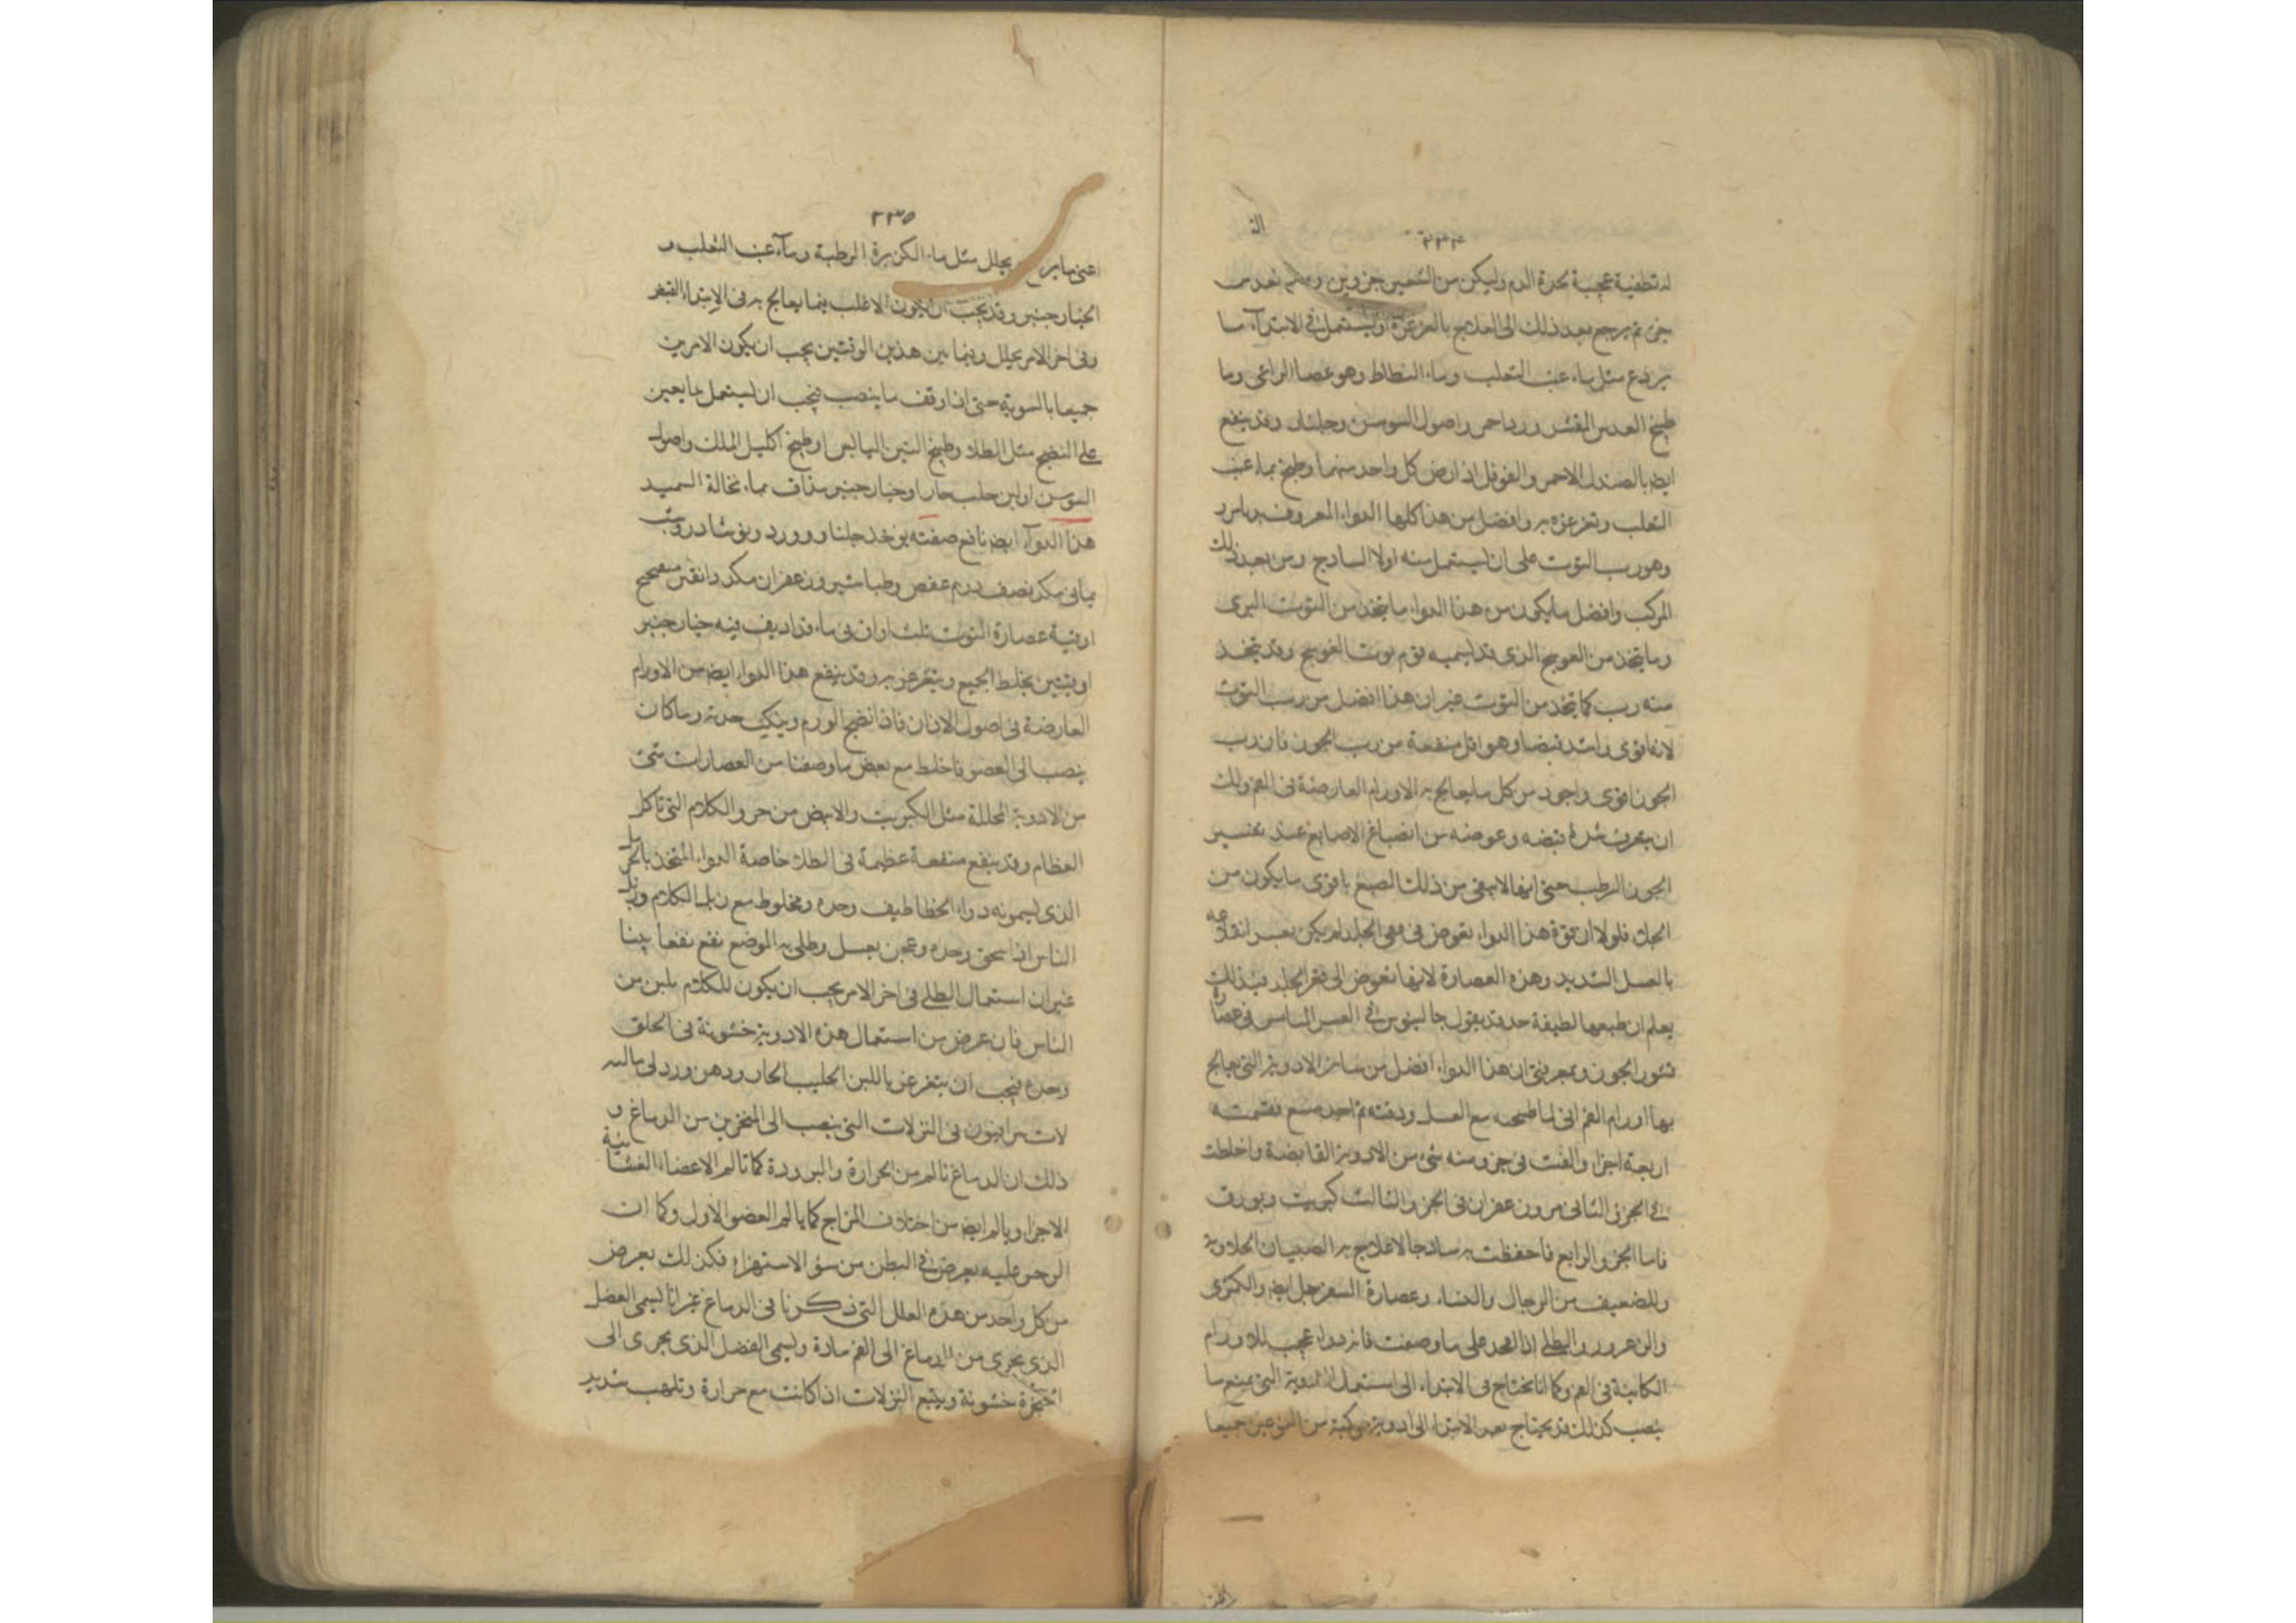 ٢٣٤
له تطفية عجيبة لحدة الدم وليكن من الشعير جزوين ومن عدس
جزء ثم يرجع بعد ذلك الى العلاج بالغرغرة ويستعمل فى الابتداء ما
يردع مثل ماء عنب الثعلب وماء البطباط وهو عصا الراعى وما
طبيخ العدس المقشر وورد احمر واصول السوسن وجلنار وقد ينفع
ايضا بالصندل الاحمر والفوفل اذا رض كل واحد منهما وطبخ بماء عنب
الثعلب وتغرغره به وافضل من هذا كلها الدواء المعروف
وهو رب التوت على ان يستعمل منه اولا الساذج ومن بعد ذلك
المركب وافضل ما يكون من هذا الدواء ما يتخذ من التوت البرى
وما يتخذ من العوسج الذى قد يسميه قوم توت العوسج وقد يتخذ
منه رب كما يتخذ من التوت غير ان هذا افضل من رب التوت
لانه اقوى واشد قبضا وهو اقل منفعة من رب الجوز فان رب
الجوز اقوى واجود من كل ما يعالج به الاورام العارضة فى الفم ولك
ان تعرف شدة قبضه وغوصه من انصباغ الاصابع عند تقشير
الجوز الرطب حتى انها لا ينقى من ذلك الصبغ باقوى ما يكون من
الجلاء فلولا ان قوة هذا الدواء تغوص فى الجلد لم يكن يعسر انقلاعه
بالغسل الشديد وهذه العصارة لانها تغوص الى قعر الجلد فبذلك
يعلم ان طبعها لطيفة حد وقد يقول جالينوس فى عصارة
قشور الجوز وتجربتى ان هذا الدواء افضل من سائر الادوية التى يعالج
بها اورام الفم انى لما طبخته مع العسل ودفته ثم قسمته
اربعة اجزاء والقيت فى جزو منه شىء من الادوية القابضة واخلطت
فى الجزو الثانى مر وزعفران فى الجزو الثالث كبريت وبورق
فاما الجزو الرابع فاحفظت به ساذجا لاعلاج به الصبيان
وللضعيف من الرجال والنساء وعصارة السفرجل ايضا والكمثرى
والزعرور والطلى اذا اتخذ على ما وصفت فانه دواء عجيب للاورام
الكائنة فى الفم وكما انا نحتاج فى الابتداء الى استعمال الادوية التى يمنع ما
ينصب كذلك قد يحتاج بعد الابتداء الى ادوية مركبة من النوعين جميعا
٢٣٥
اعنى ما يردع يحلل مثل ماء الكزبرة الرطبة وماء عنب الثعلب و
الخيارجنبر وقد يجب ان يكون الاغلب فيما يعالج به فى الابتداء القبض
وفى اخر الامر يحلل وفيما بين هذين الوقتين يجب ان يكون الامرين
جميعا بالسوية حتى اذا وقف ما ينصب فيجب ان يستعمل ما يعين
على النضج مثل الطلاء وطبيخ التين اليابس او طبيخ اكليل الملك واصول
السوسن او لبن حليب حار او خيارجنبر مذاف بماء نخالة السميد
هذا الدواء ايضا نافع صفته يوخذ جلنار وورد ونوشادر وشب
يمانى مكد نصف درهم عفص وطباشير وزعفران مكد دانقين
اوقية عصارة التوت ثلث اواقى ماء قد اديف فيه خيارجنبر
اوقيتين يخلط الجميع ويتغرغر به وقد ينفع هذا الدواء ايضا من الاورام
العارضة فى اصول الاذان فاذا نضج الورم وينكى حدته وما كان
ينصب الى العضو فاخلط مع بعض ما وصفنا من العصارات شىء
من الادوية المحللة مثل الكبريت والابيض من خرو الكلاب التى تاكل
العظام وقد ينفع منفعة عظيمة فى الطلاء خاصة الدواء المتخذ بالحرمل
الذى يسمونه دواء الخطاطيف وحده ومخلوط مع زبل الكلاب وزبل
الناس اذا سحق وحده وعجن بعسل وطلى به الموضع نفع نفعا بينا
غير ان استعمال الطلى فى اخر الامر يجب ان يكون
الناس فان عرض من استعمال هذه الادوية خشونة فى الحلق
وحده فيجب ان يتغرغر باللبن الحليب الحار ودهن ورد
فى النزلات التى ينصب الى المنخرين من الدماغ و
ذلك ان الدماغ تالم من الحرارة والبرودة كما تالم الاعضاء المتشابهة
الاجزاء ويالم ايضا من اختلاف المزاج كما يالم العضو الاول وكما ان
عليه يعرض فى البطن من سؤ الاستمراء فكذلك يعرض
من كل واحد من هذه العلل التى ذكرنا فى الدماغ غير انا يسمى الفضل
الذى يجرى من الدماغ الى الفم مادة ويسمى الفضل الذى يجرى الى
الحنجرة خشونة ويتبع النزلات اذا كانت مع حرارة وتلهب شديد